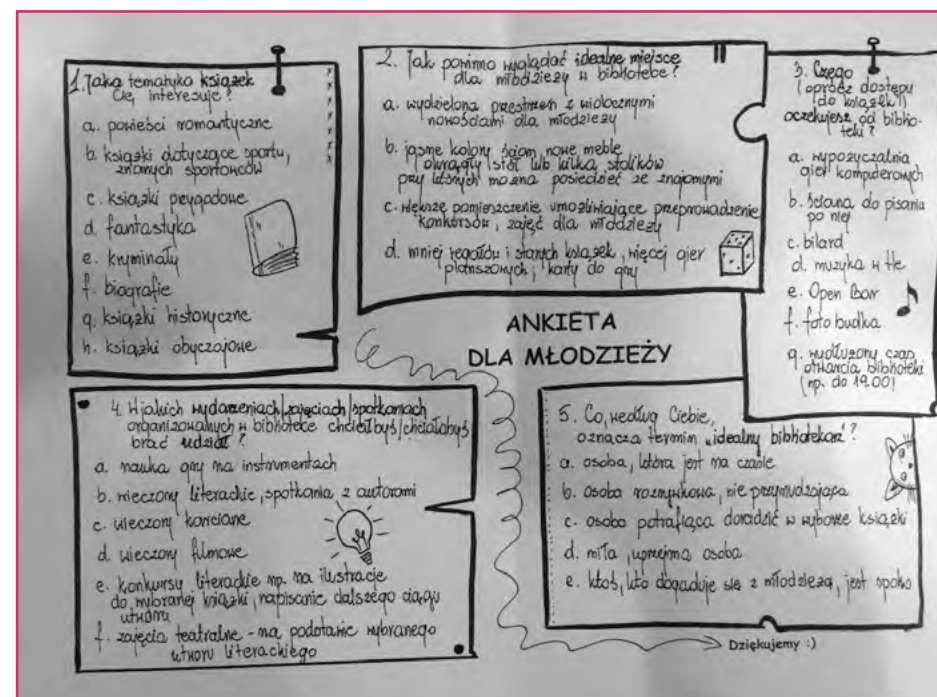 1. Jaka tematyka książek
Cię interesuje?
a. powieści romantyczne
b. książki dotyczące sportu,
znanych sportowców
c. książki przygodowe
d. fantastyka
e. kryminały
f. biografie
g. książki historyczne
h. książki obyczajowe
2. Jak powinno wyglądać idealne miejsce
dla młodzieży w bibliotece?
a. wydzielona przestrzeń z widocznymi
nowościami dla młodzieży
b. jasne kolory ścian, nowe meble,
okrągły stół lub kilka stolików
przy których można posiedzieć ze znajomymi
c. większe pomieszczenie umożliwiające przeprowadzenie
konkursów, zajęć dla młodzieży
d. mniej regałów i starych książek, więcej gier
planszowych, karty do gry
3. Czego
(oprócz dostępu
do książek!)
oczekujesz od biblio-
teki?
a. wypożyczalnia
gier komputerowych
b. ściana do pisania
po niej
c. bilard
d. muzyka w tle
e. Open Bar
f. foto budka
g. wydłużony czas
otwarcia biblioteki
(np. do 19.00)
ANKIETA
DLA MŁODZIEŻY
4. W jakich wydarzeniach/zajęciach/spotkaniach
organizowanych w bibliotece chciałbyś/chciałabyś
brać udział?
a. nauka gry na instrumentach
b. wieczory literackie, spotkania z autorami
c. wieczory karciane
d. wieczory filmowe
e. konkursy literackie np. na ilustracje
do wybranej książki, napisanie dalszego ciągu
utworu
f. zajęcia teatralne - na podstawie wybranego
utworu literackiego
5. Co, według Ciebie,
oznacza termin „idealny bibliotekarz"?
a. osoba, która jest na czasie
b. osoba rozrywkowa, nie przynudzająca
c. osoba potrafiąca doradzić w wyborze książki
d. miła, uprzejma osoba
e. ktoś, kto dogaduje się z młodzieżą, jest spoko
Dziękujemy :)